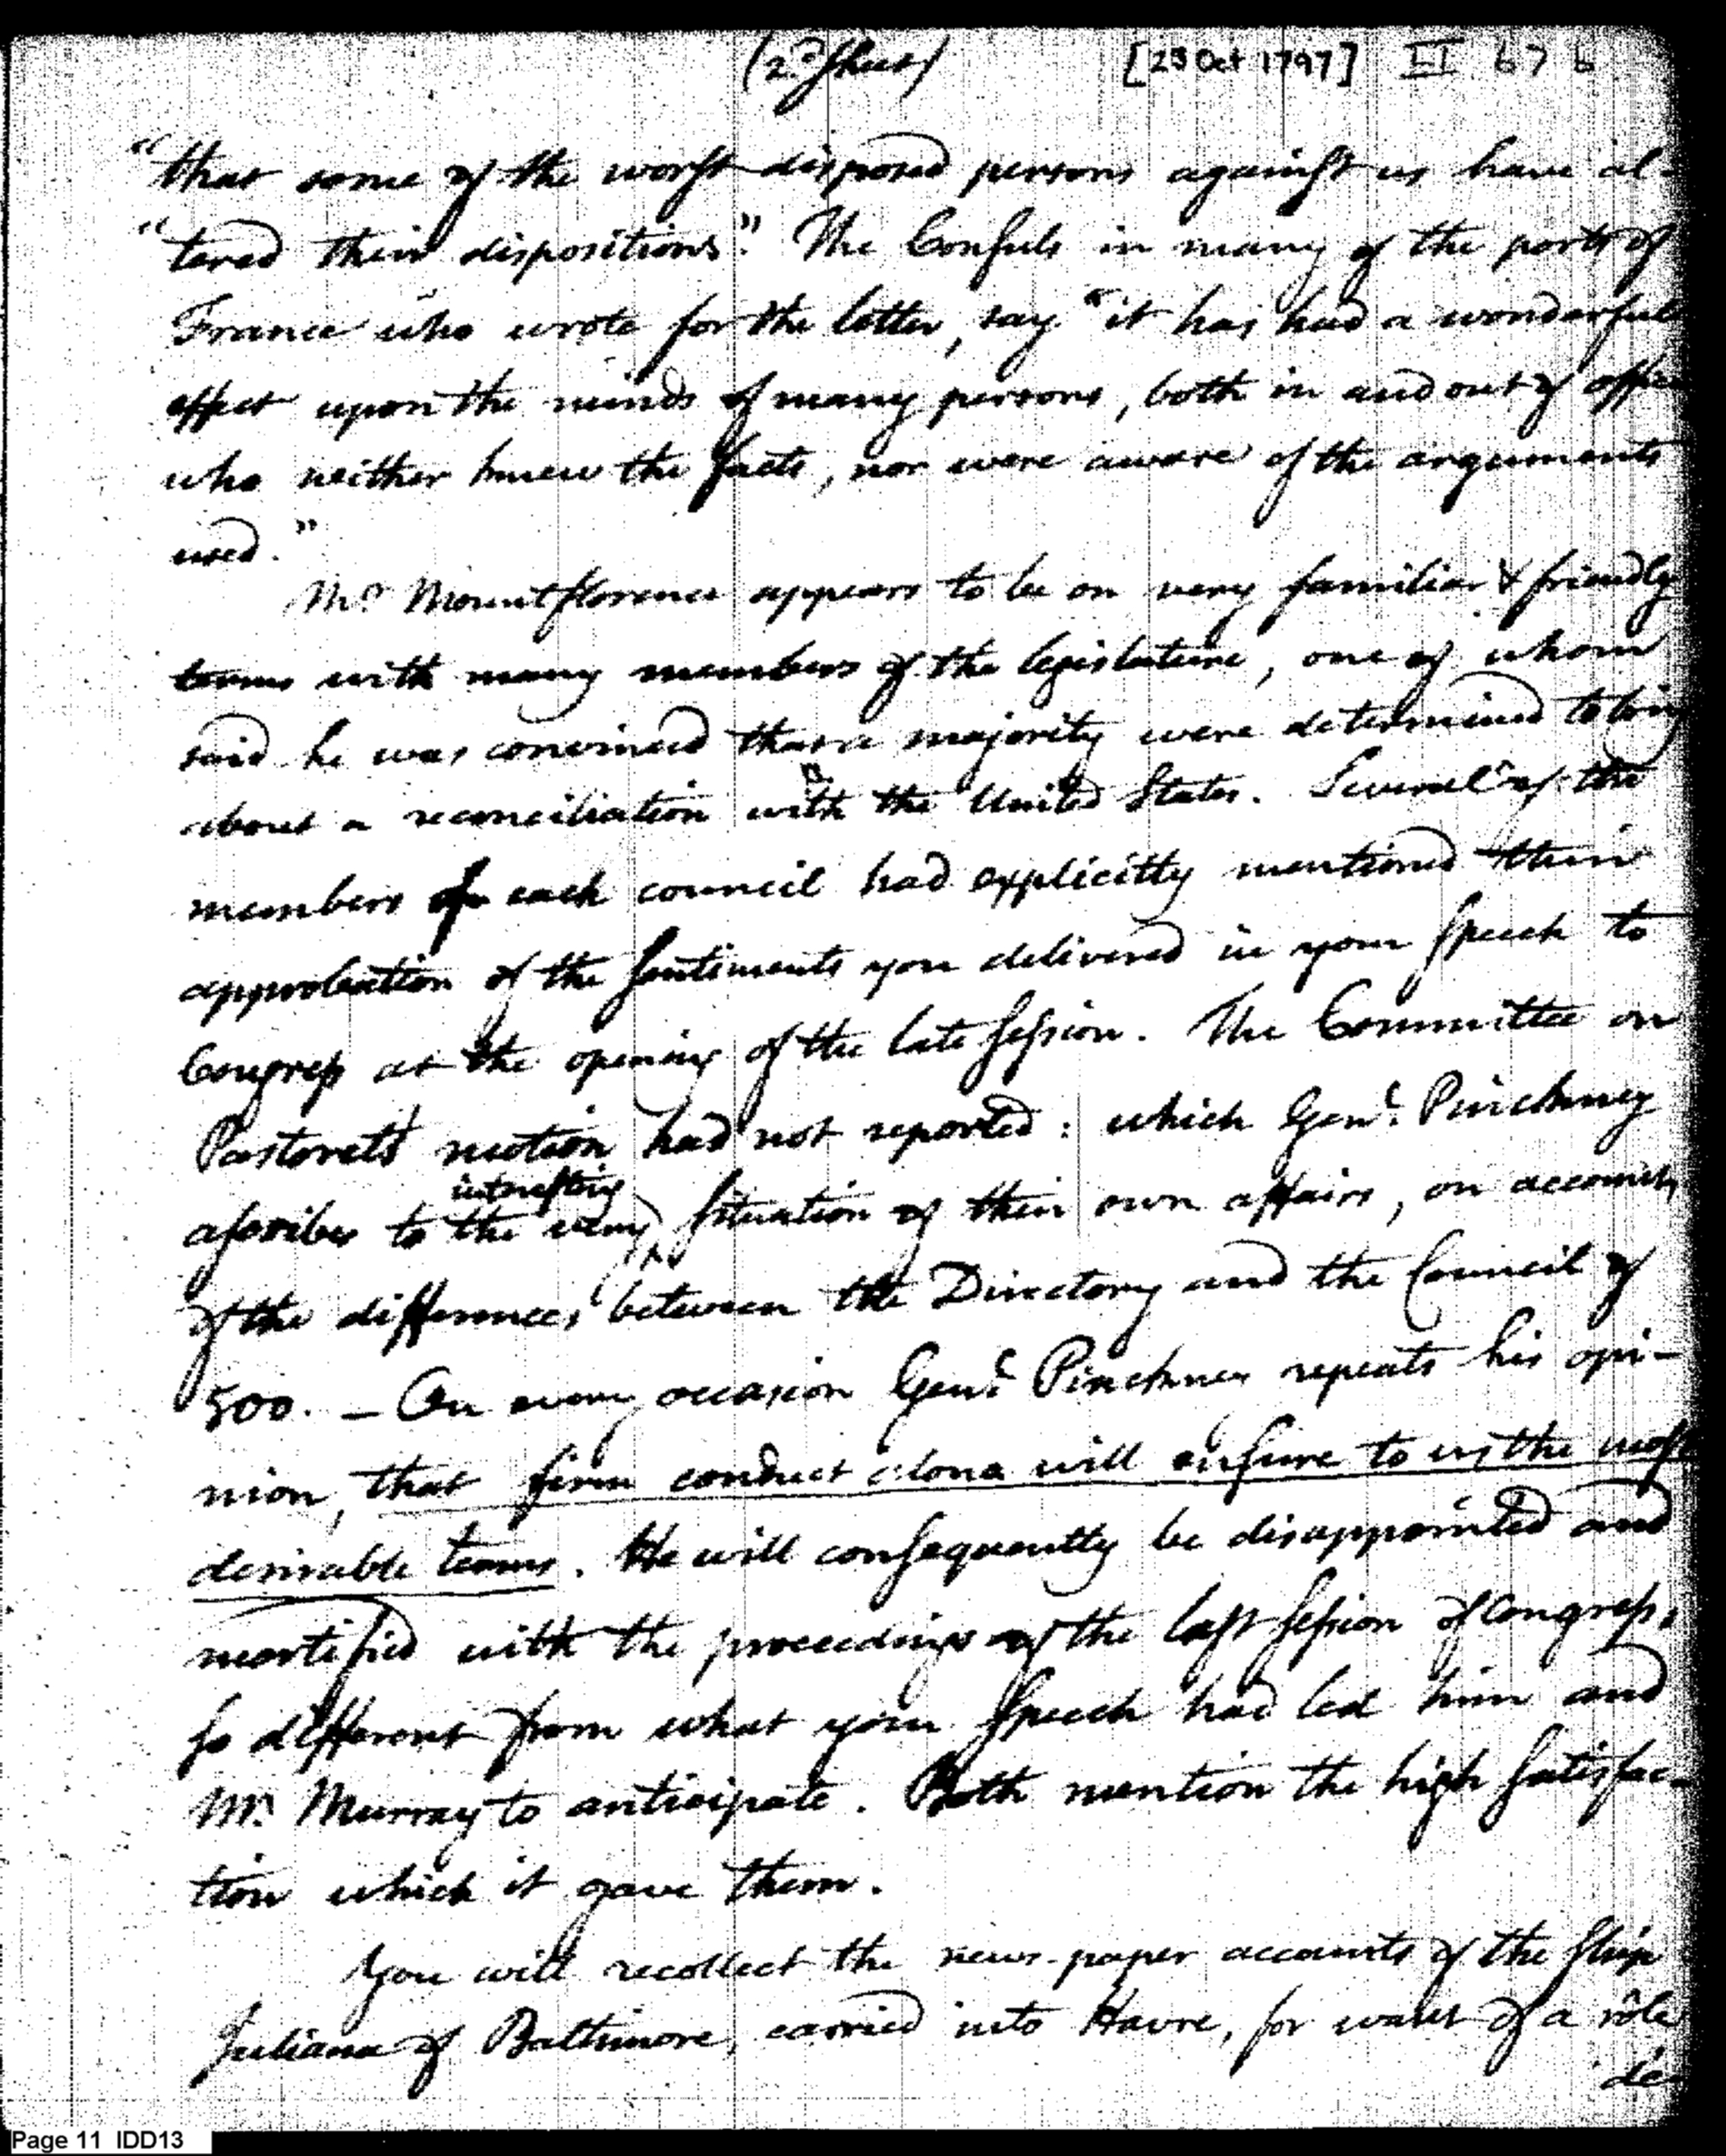 (2.d sheet) [23 Oct 1797] II 676
"that some of the worst disposed persons against us have al-
"tered their dispositions". The Consuls in many of the ports of
France who wrote for the letter, say "it has had a wonderful
effect upon the minds of many persons, both in and out of office
who neither knew the facts, nor were aware of the arguments
used."
Mr. Mountflorence appears to be on very familiar & friendly
terms with many members of the legislature, one of whom
said he was convinced that a majority were determined to bring
about a reconciliation with the United States. Several of the
members of each council had explicitly mentioned their
approbation of the sentiments you delivered in your speech to
Congress at the opening of the late session. The Committee on
Pastoret's motion had not reported: which Genl. Pinckney
interesting
ascribes to the very situation of their own affairs, on account
of the differences between the Directory and the Council of
500. — On every occasion Genl. Pinckney repeats his opi-
nion, that firm conduct alone will insure to us the most
desirable terms. He will consequently be disappointed and
mortified with the proceedings of the last session of Congress,
so different from what your speech had led him and
Mr. Murray to anticipate. Both mention the high satisfac-
tion which it gave them.
You will recollect the news-paper accounts of the ship
Juliana of Baltimore, carried into Havre, for want of a rôle
de-
Page 11 IDD13